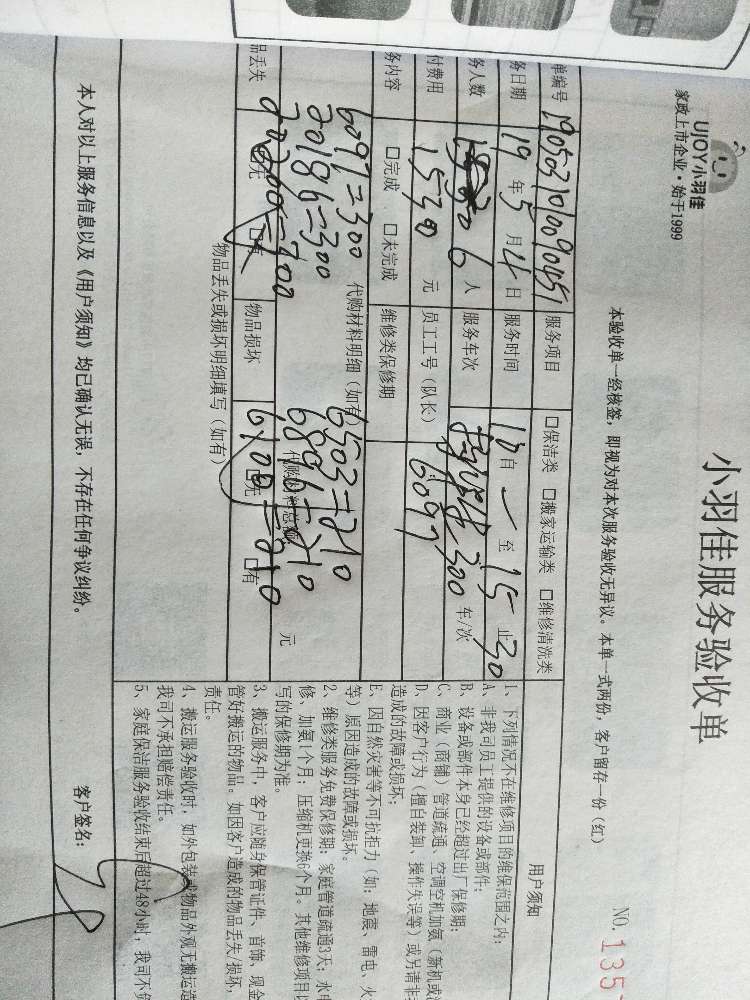 UJOY小羽佳
家政上市企业·始于1999
小羽佳服务验收单
NO. 135
本验收单一经核签，即视为对本次服务验收无异议。本单一式两份，客户留存一份（红）
单编号 1905031010090451 服务项目 □保洁类 □搬家运输类 □维修清洗类
务日期 19年5月4日 服务时间 10自 至15止30
务人数 6人 服务车次 300 车/次
付费用 1530元 员工工号（队长） 6097
务内容 □完成 □未完成 维修类保修期
代购材料明细（如有）
6097=300 6503=210
20186=300 6806=210
代购材料总额 元
品丢失 □无 □有 物品损坏 □无 □有
物品丢失或损坏明细填写（如有）
用户须知
1、下列情况不在维修项目的维保范围之内：
A、非我司员工提供的设备或部件；
B、设备或部件本身已经超过出厂保修期；
C、商业（商铺）管道疏通、空调空机加氨（新机或
D、因客户行为（擅自装卸、操作失误等）或另请非
造成的故障或损坏；
E、因自然灾害等不可抗拒力（如：地震、雷电、火
等）原因造成的故障或损坏。
2、维修类服务免费保修期：家庭管道疏通3天；水电
修、加氨1个月；压缩机更换6个月。其他维修项目以
写的保修期为准。
3、搬运服务中，客户应随身保管证件、首饰、现金
管好搬运的物品。如因客户造成的物品丢失/损坏，
责任。
4、搬运服务验收时，如外包装或物品外观无搬运造
我司不承担赔偿责任。
5、家庭保洁服务验收结束后超过48小时，我司不负
本人对以上服务信息以及《用户须知》均已确认无误，不存在任何争议纠纷。
客户签名：